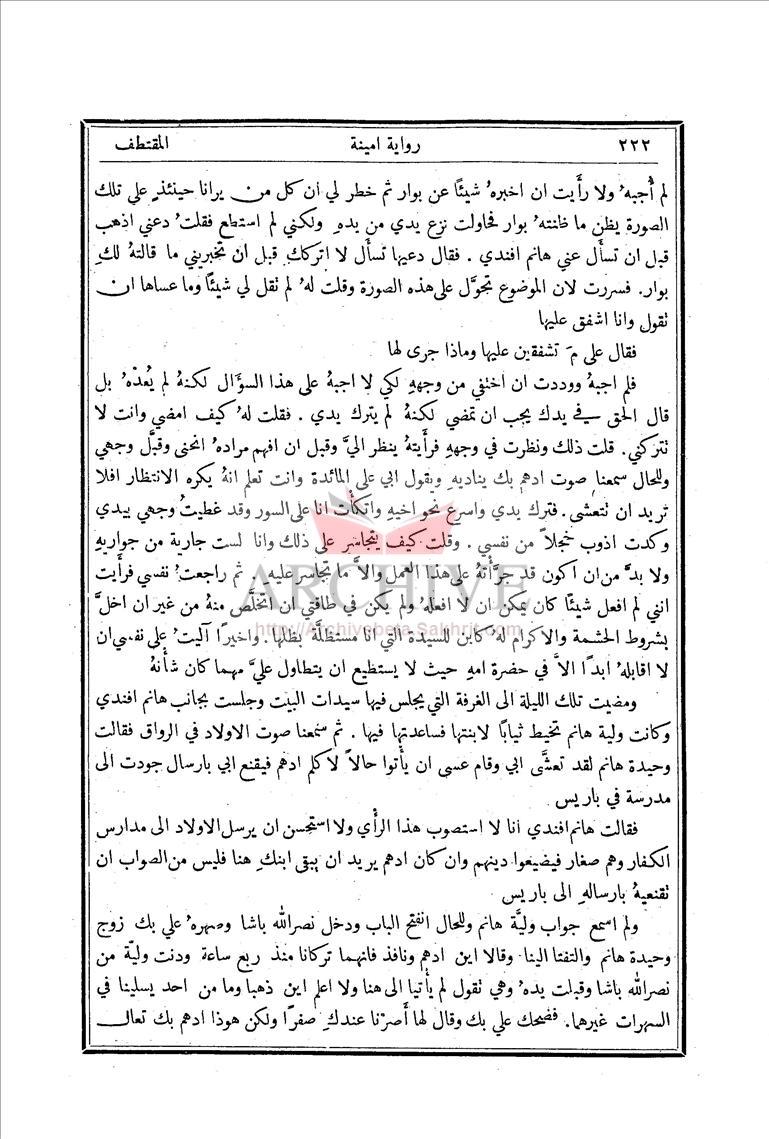 ٢٢٢ رواية امينة المقتطف
لم أُجبهُ ولا رأَيت ان اخبرهُ شيئًا عن بوار ثم خطر لي ان كل من يرانا حينئذٍ على تلك
الصورة يظن ما ظانتهُ بوار فحاولت نزع يدي من يدهِ ولكني لم استطع فقلتُ دعني اذهب
قبل ان تسأَل عني هانم افندي . فقال دعيها تسأَل لا اتركك قبل ان تخبريني ما قالتهُ لكِ
بوار. فسررت لان الموضوع تحوَّل على هذه الصورة وقلت لهُ لم نقل لي شيئًا وما عساها ان
تقول وانا اشفق عليها
فقال على مَ تشفقين عليها وماذا جرى لها
فلم اجبهُ ووددت ان اختفي من وجههِ لكي لا اجبهُ على هذا السؤَال لكنهُ لم يُعدْهُ بل
قال الحق في يدك يجب ان تمضي لكنهُ لم يترك يدي . فقلت لهُ كيف امضي وانت لا
تتركني. قلت ذلك ونظرت في وجههِ فرأَيتهُ ينظر اليَّ وقبل ان افهم مرادهُ انحنى وقبَّل وجهي
وللحال سمعنا صوت ادهم بك يناديهِ ويقول ابي على المائدة وانت تعلم انهُ يكره الانتظار افلا
تريد ان تتعشَّى. فترك يدي واسرع نحو اخيهِ واتكأْت انا على السور وقد غطيتُ وجهي بيدي
وكدت اذوب خجلاً من نفسي . وقلت كيف يتجاسر على ذلك وانا لست جارية من جواريهِ
ولا بدَّ من ان أكون قد جرَّأتهُ على هذا العمل والاَّ ما تجاسر عليهِ . ثم راجعتُ نفسي فرأَيت
انني لم افعل شيئًا كان يمكن ان لا افعلهُ ولم يكن في طاقتي ان اتخلَّص منهُ من غير ان اخلَّ
بشروط الحشمة والاكرام لهُ كابن للسيدة التي انا مستظلَّة بظلها. واخيرًا آليتُ على نفسي ان
لا اقابلهُ ابدًا الاَّ في حضرة امهِ حيث لا يستطيع ان يتطاول عليَّ مهما كان شأْنهُ
ومضيت تلك الليلة الى الغرفة التي يجلس فيها سيدات البيت وجلست بجانب هانم افندي
وكانت ولية هانم تخيط ثيابًا لابنتها فساعدتها فيها . ثم سمعنا صوت الاولاد في الرواق فقالت
وحيدة هانم لقد تعشَّى ابي وقام عسى ان يأْتوا حالاً لاكلم ادهم فيقنع ابي بارسال جودت الى
مدرسة في باريس
فقالت هانم افندي انا لا استصوب هذا الرأْي ولا استحسن ان يرسل الاولاد الى مدارس
الكفار وهم صغار فيضيعوا دينهم وان كان ادهم يريد ان يبقى ابنكِ هنا فليس من الصواب ان
تقنعيهُ بارسالهِ الى باريس
ولم اسمع جواب وليَّة هانم وللحال انفتح الباب ودخل نصرالله باشا وصهرهُ علي بك زوج
وحيدة هانم والتفتا الينا وقالا اين ادهم ونافذ فانهما تركانا منذ ربع ساعة ودنت وليَّة من
نصرالله باشا وقبلت يدهُ وهي تقول لم يأْتيا الى هنا ولا اعلم اين ذهبا وما من احد يسلينا في
السهرات غيرهما. فضحك علي بك وقال لها أَصرْنا عندكِ صفرًا ولكن هوذا ادهم بك تعال
ARCHIVE
http://Archivebeta.Sakhrit.com